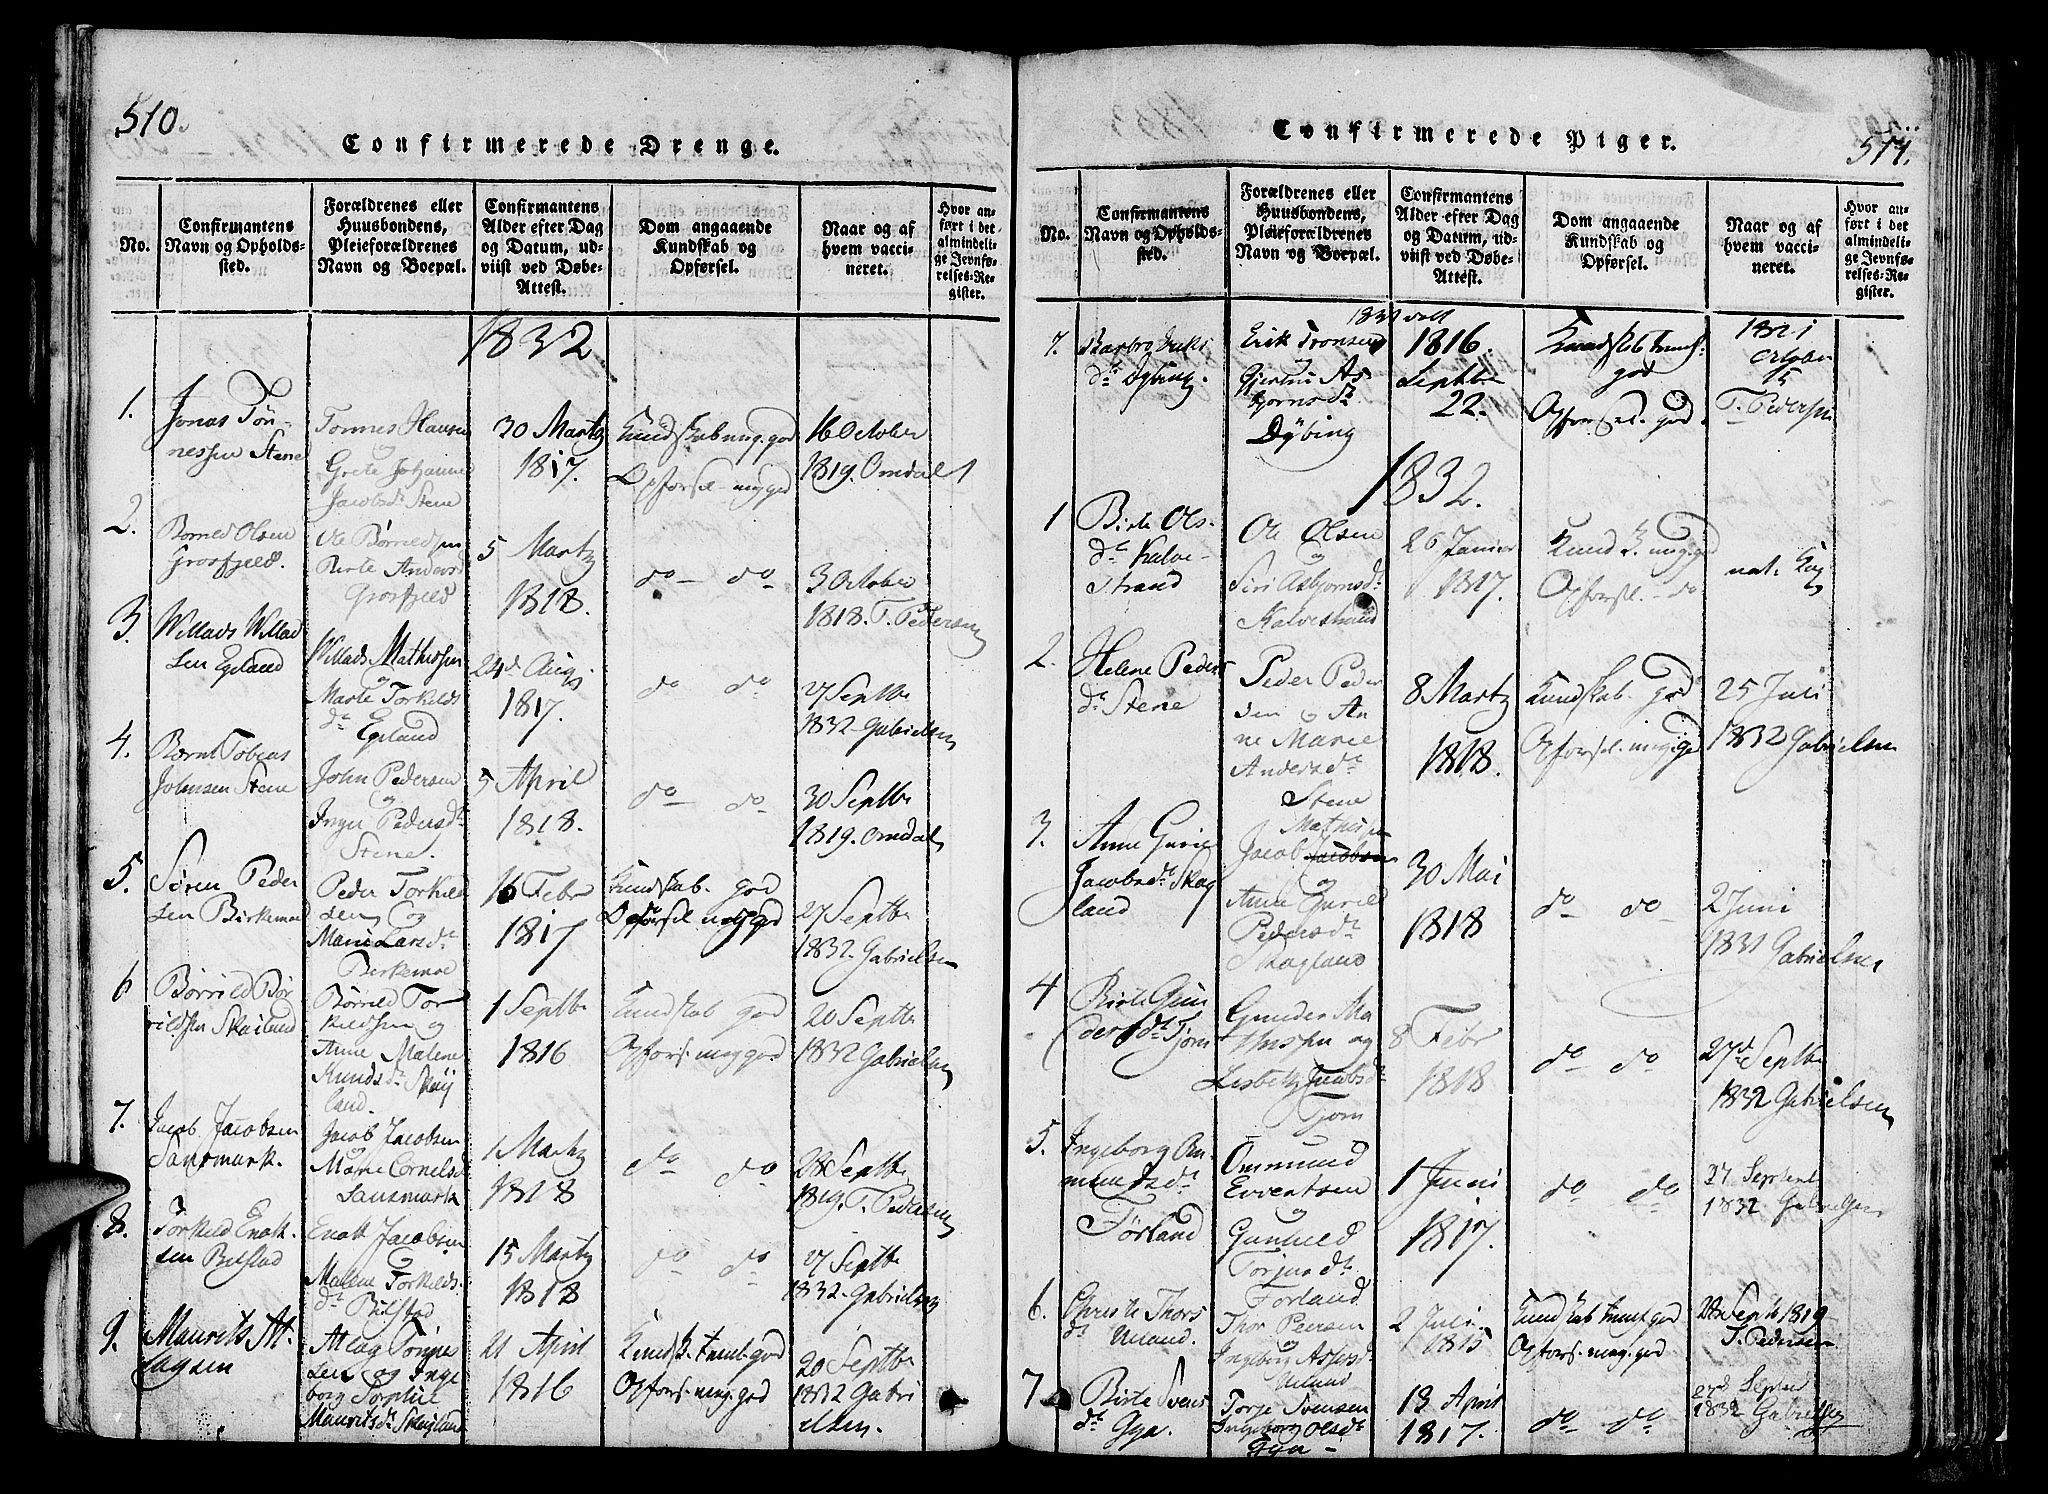 510.
Confirmerede Drenge.
No.
Confirmantens Navn og Opholdssted.
Forældrenes eller Huusbondens, Pleieforældrenes Navn og Boepæl.
Confirmantens Alder efter Dag og Datum, udviist ved Døbe-Attest.
Dom angaaende Kundskab og Opførsel.
Naar og af hvem vaccineret.
Hvor anført i det almindelige Jevnførelses-Register.
1832
1.
Jonas Tön-
nessen Stene
Tonnes Hansen
og
Grete Johanne
Jacobsdr Stene
30 Martz
1817.
Kundskab mug. god
Opförsel - mug god
16 October
1819. Omdal
2.
Börrild Olsen
Grosfjeld.
Ole Börrildsen
Birte Anders
Grosfjeld
5 Martz
1818.
do - do
3 October
1818. T. Pedersen
3.
Willads Willad
sen Egeland
Willads Mathissen
og
Marte Torkelds
dr Egeland
24d Aug.
1817.
do do
27 Septbr
1832 Gabrielsen
4.
Bernt Tobias
Johnsen Stene
John Pedersen
og
Inger Pedersdr
Stene.
5 April
1818.
do - do
30 Septbr
1819. Omdal
5.
Sören Peder
sen Birkemoe
Peder Torkild
sen og
Marie Larsdr
Birkemoe
16 Febr
1817
Kundskab. god
Opförsel mug god
27 Septbr
1832. Gabrielsen
6
Börrild Bör
rildsen Skailand
Börrild Tor
kildsen og
Anne Malene
Knudsdr Skaij
land.
1 Septbr
1816
Kundskab god
Opförs. mug god
20 Septbr
1832 Gabrielsen
7.
Jacob Jacobsen
Sandsmark.
Jacob Jacobsen
og
Marie Cornelsd
Sandsmark
1 Martz
1818
do do
28 Septbr
1819. T. Pedersen
8.
Torkild Enok-
sen Bilstad
Enok Jacobsen
og
Malene Torkilds
dr Bilstad
15 Martz
1818
do do
27 Septbr
1832. Gabrielsen
9.
Maurits At-
lagsen
Atlag Torje
sen og Inge
borg Sophie
Mauritsdr Skaijland
21 April
1816
Kundsk. temml. god
Opförs. mug. god
20 Septbr
1832 Gabri
elsen.
511.
Confirmerede Piger.
No.
Confirmantens Navn og Opholdssted.
Forældrenes eller Huusbondens, Pleieforældrenes Navn og Boepæl.
Confirmantens Alder efter Dag og Datum, udviist ved Døbe-Attest.
Dom angaaende Kundskab og Opførsel.
Naar og af hvem vaccineret.
Hvor anført i det almindelige Jevnførelses-Register.
7.
Barbro Eriks
dr Dybing.
Erik Tronsen
og
Gjertrui As
bjornsdr
Dybing
1816.
Septbr
22.
Kundskab temml.
god
Opförsel. god
1821
October
15
T. Pedersen
1832.
1
Birte Ols-
dr Kalve-
strand
Ole Olsen
og
Siri Asbjornsdr
Kalvestrand
26 Januar
1817.
Kundsk. mug. god
Opförsel - do
nat. Kop
2.
Helene Peders
dr Stene
Peder Peder
sen og An
ne Marie
Andersdr
Stene
8 Martz
1818.
Kundskab. god
Opförsel. mug. god
25 Juli
1832 Gabrielsen
3.
Anne Gurie
Jacobsdr Skag
land
Mathissen
Jacob Jacobsen
og
Anne Gurild
Pedersdr
Skagland
30 Mai
1818
do - do
2 Juni
1831 Gabrielsen
4
Birte Gun
dersdr Tjorn
Gunder Ma
thissen og
Lisbeth Jacobsdr
Tjorn
8 Febr
1818
do do
27d Septbr
1832 Gabrielsen
5.
Ingeborg Om-
mundsdr
Förland
Ommund
Evertsen
og
Gunnild
Torjusdr
Förland
1 Juni
1817.
do do
27 Septenbr
1832 Gabrielsen
6.
Christi Thors
dr Ueland.
Thor Peersen
og
Ingeborg Aspersdr
Ueland
2 Juli
1815
Kundskab temml god
Opförs. mug. god
28 Septbr 1819
T. Pedersen
7
Birte Svens
dr Gya.
Torje Svensen
Ingeborg Olsdr
Gya -
13 April
1817.
do do
27d Septbr
1832 Gabrielsen